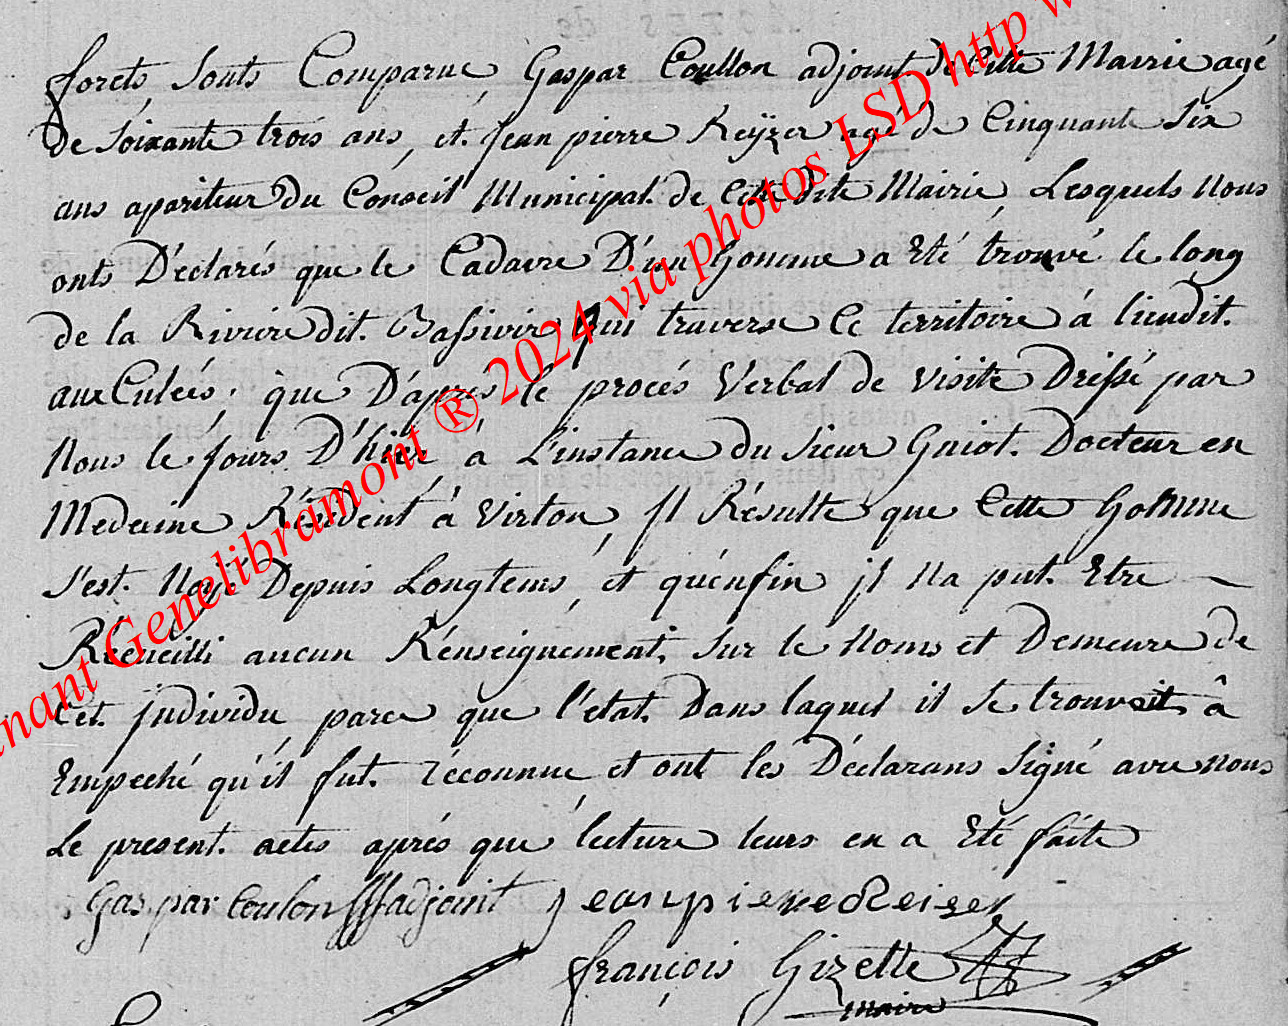 forets, sonts Comparue, Gaspar Coullon adjoint de Cette Mairie agé
de soixante trois ans, et Jean pierre Keÿzer agé de Cinquante six
ans apariteur du Conseil Municipal. de Cette dite Mairie, Lesquels Nous
onts Déclarés que le Cadavre D'un homme a Eté trouvé le long
de la Riviere dit. Bassivir qui traverse Ce territoire á lieudit.
aux Culées, que D'aprés le procés Verbal de visite Dressé par
Nous le jours D'hier á L'instance du sieur Guiot. Docteur en
Medecine Résident á Virton, Il Résulte que Cette homme
s'est. Noÿé Depuis Longtems, et qu'enfin il Na put. Etre
Récueilli aucun Rénseignement, sur le Noms et Demeure de
Cet. individu, parce que l'etat. Dans laquel il se trouvoit â
Empeché qu'il fut. réconnue, et ont les Déclarans signé avec nous
Le present. actes aprés que lecture leurs en a Eté faite
Gaspar Coulon adjoint Jeanpiere Keiser
françois Gizette
maire
Genelibramont ® 2024 via photos LSD http